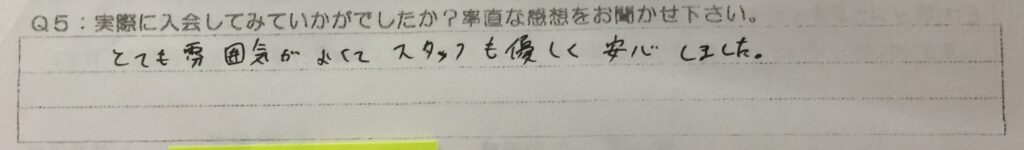 Q5：実際に入会してみていかがでしたか？率直な感想をお聞かせ下さい。
とても雰囲気がよくて スタッフも優しく 安心しました。